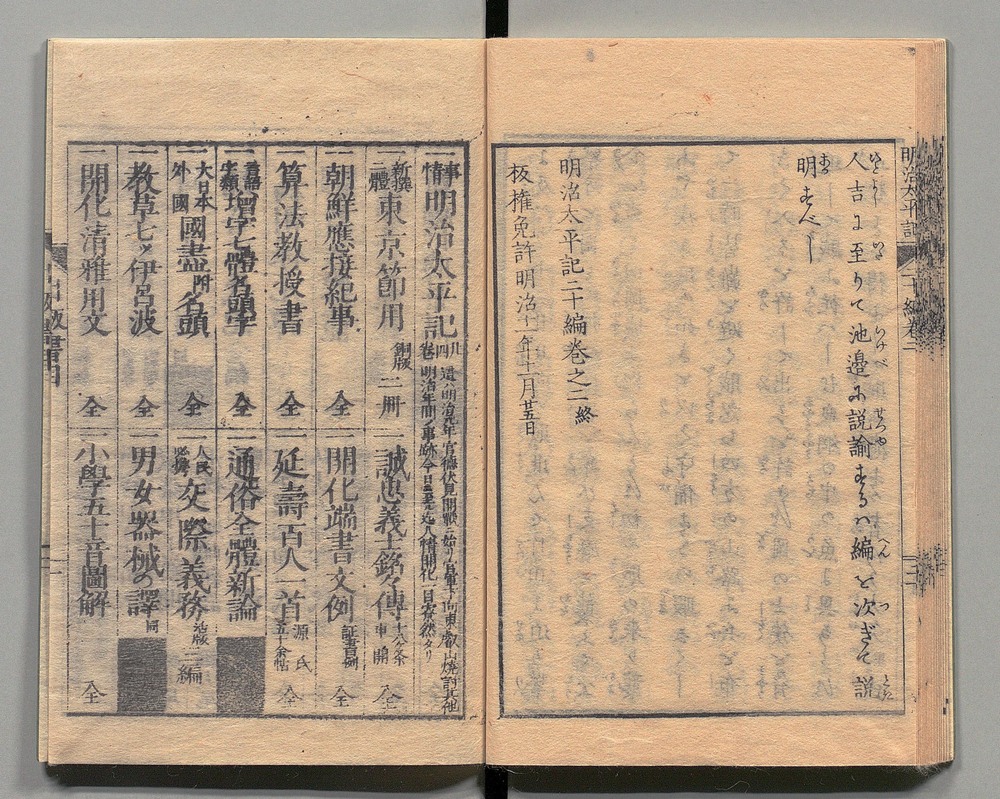 明治太平記 二十編巻二
人吉に至りて池邊に説諭するハ編を次ぎて説
明すべし
明治太平記二十編巻之二終
板権免許明治十一年十一月廿五日
一事情明治太平記 四 巻
一新撰二體東京節用 銅版 二冊
一朝鮮應接紀事 全
一算法教授書 全
一言語字類増字七體名頭字 全
一大日本外國國盡附名頭 全
一教草七ツ伊呂波 全
一開化清雅用文 全
一誠忠義士銘々傳 全
一開化端書文例 証書例 全
一延壽百人一首 源氏 全
一通俗全體新論
一人民必携交際義務 三編
一男女器械の譯 同
一小學五十音圖解 全